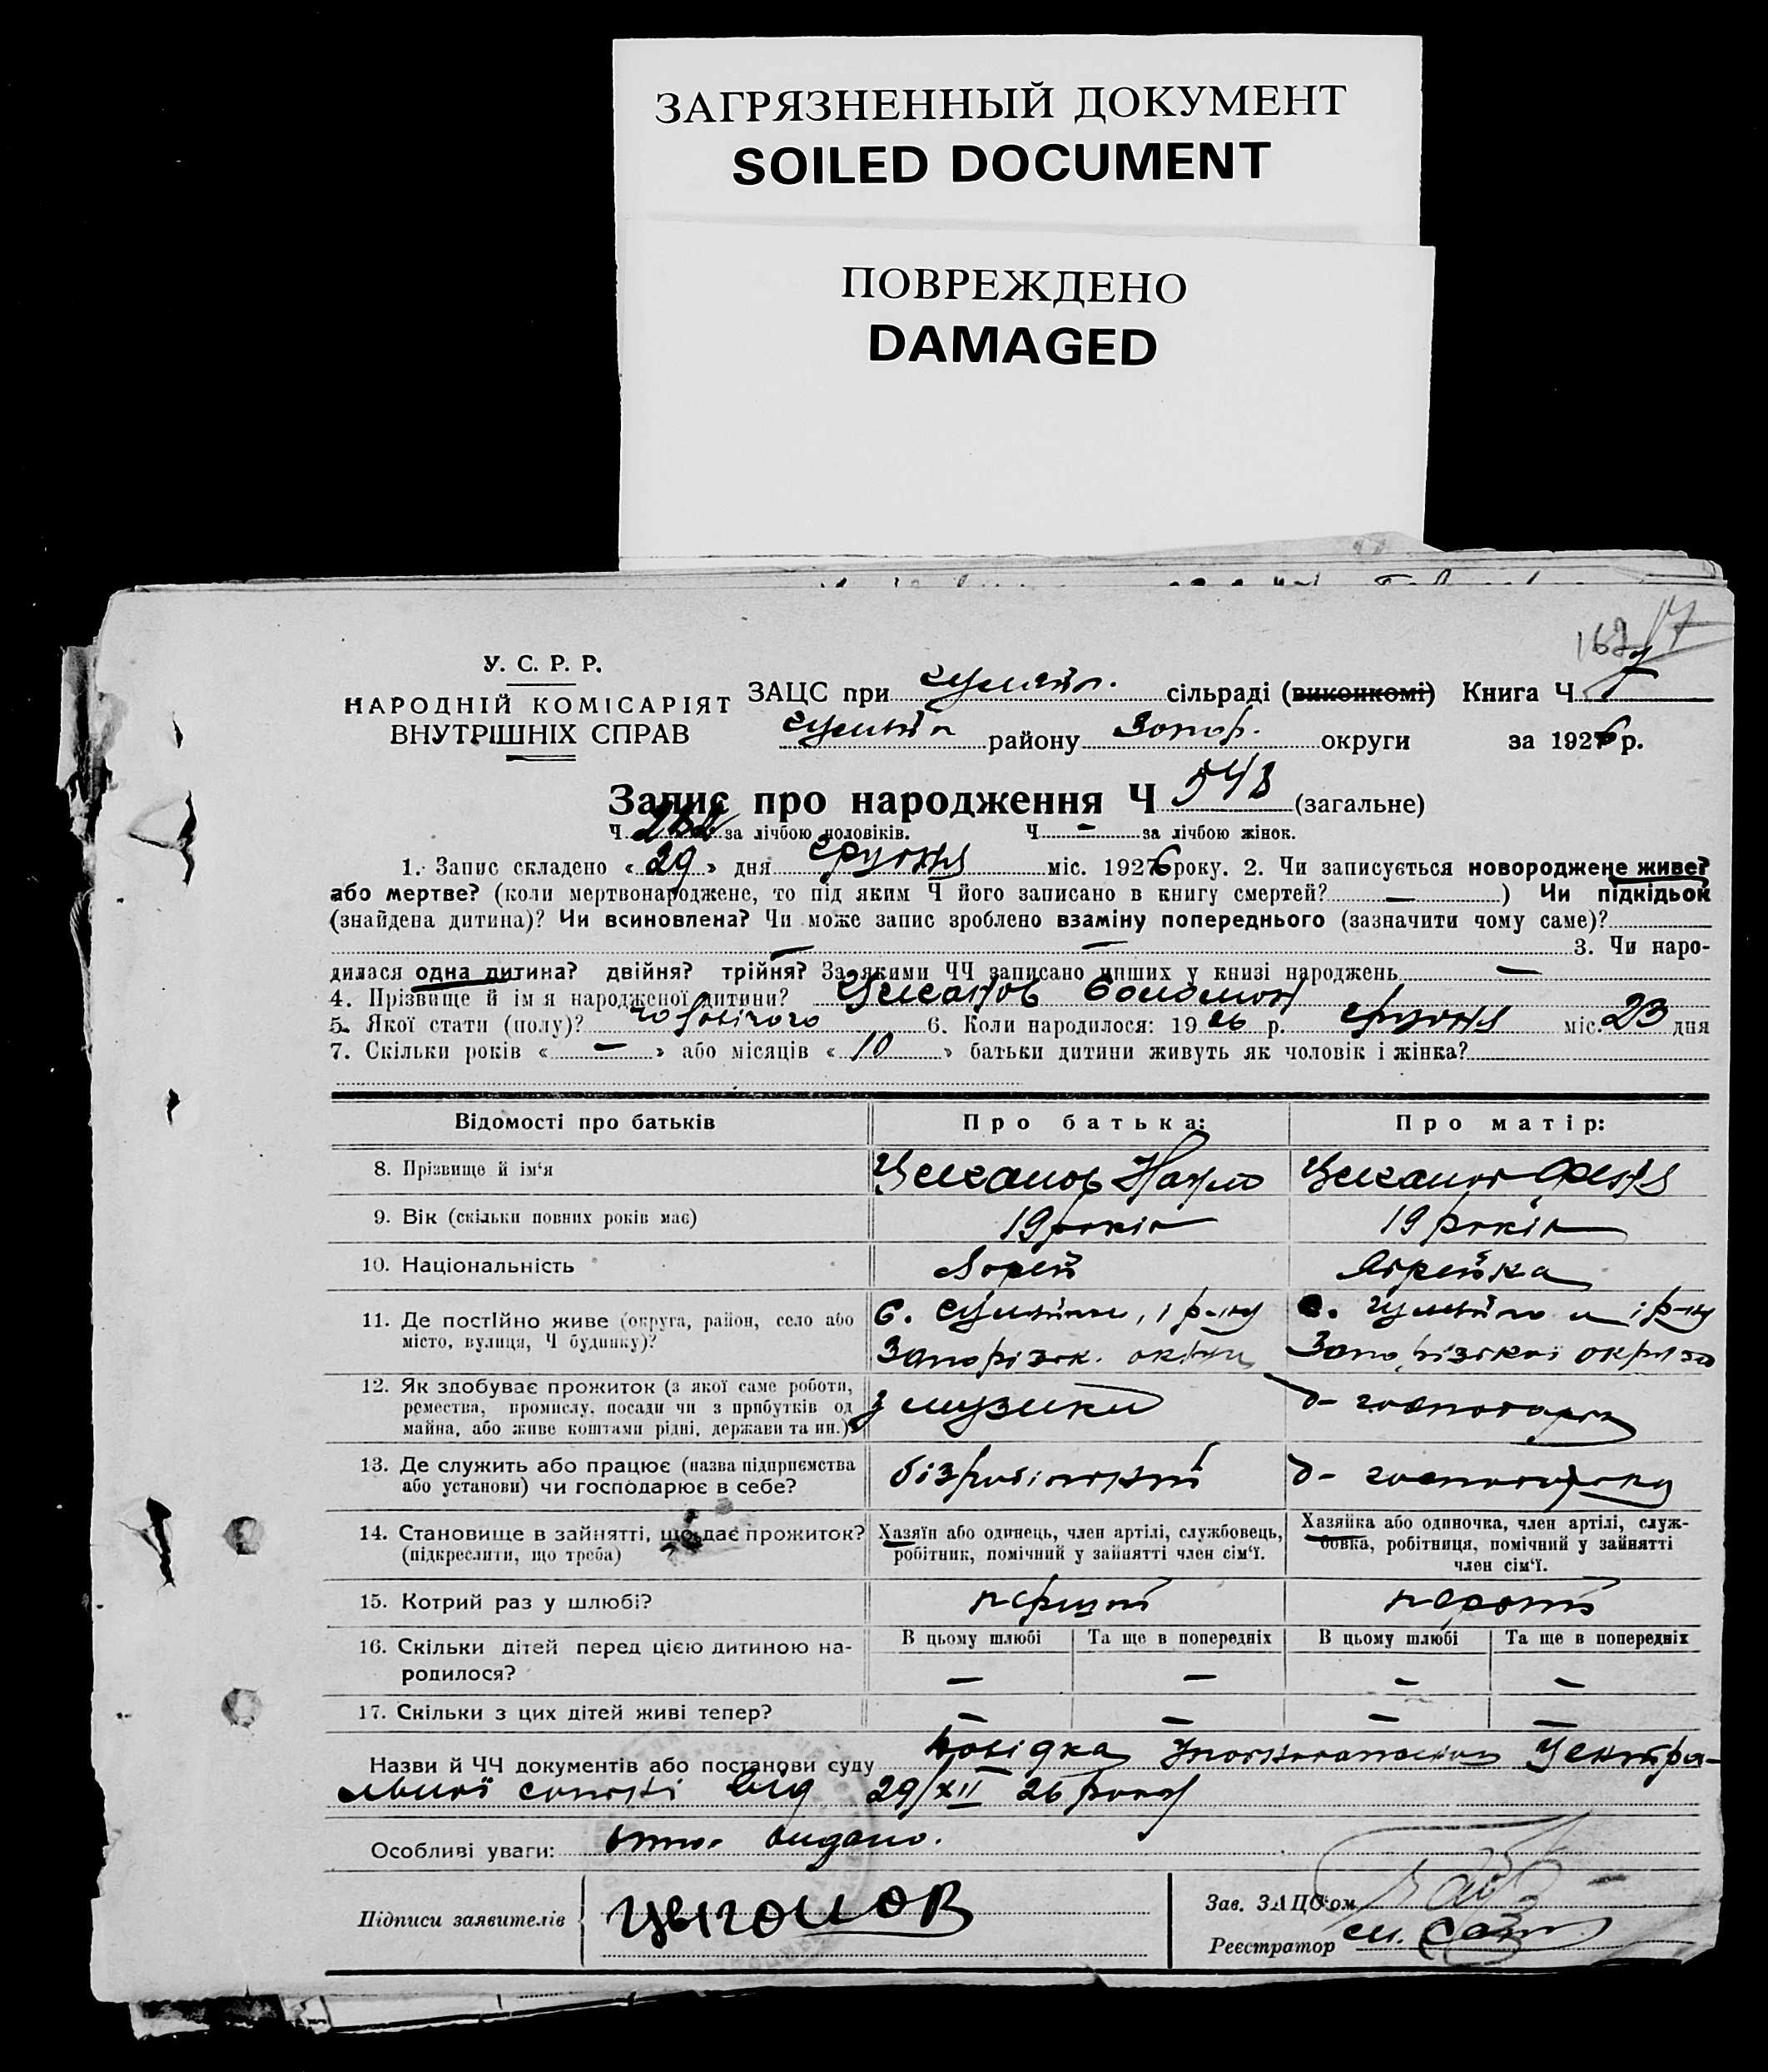 ЗАГРЯЗНЕННЫЙ ДОКУМЕНТ
SOILED DOCUMENT
ПОВРЕЖДЕНО
DAMAGED
У. С. Р. Р.
НАРОДНІЙ КОМІСАРІЯТ
ВНУТРІШНІХ СПРАВ
ЗАЦС при сільраді (виконкомі) Книга Ч 7
району Запор. округи за 1926 р.
Запис про народження Ч 548 (загальне)
Ч за лічбою чоловіків. Ч — за лічбою жінок.
1. Запис складено « 29 » дня грудня міс. 1926 року. 2. Чи записується новороджене живе?
або мертве? (коли мертвонароджене, то під яким Ч його записано в книгу смертей? — ) Чи підкідьок
(знайдена дитина)? Чи всиновлена? Чи може запис зроблено взаміну попереднього (зазначити чому саме)?
— — 3. Чи наро-
дилася одна дитина? двійня? трійня? За якими ЧЧ записано инших у книзі народжень —
4. Прізвище й ім'я народженої дитини? Циганов Соломон
5. Якої стати (полу)? чоловічого 6. Коли народилося: 19 26 р. грудня міс. 23 дня
7. Скільки років « — » або місяців « 10 » батьки дитини живуть як чоловік і жінка?
Відомості про батьків Про батька: Про матір:
8. Прізвище й ім'я Циганов Наум Циганов Феня
9. Вік (скільки повних років має) 19 років 19 років
10. Національність Єврей Єврейка
11. Де постійно живе (округа, район, село або
місто, вулиця, Ч будинку)?
с. і р-ну с. і р-ну
Запорізьк. округи Запорізької округи
12. Як здобуває прожиток (з якої саме роботи,
ремества, промислу, посади чи з прибутків од
майна, або живе коштами рідні, держави та ин.)?
з музики д-господарка
13. Де служить або працює (назва підприємства
або установи) чи господарює в себе?
безробітний д-господарка
14. Становище в зайнятті, що дає прожиток?
(підкреслити, що треба)
Хазяїн або одинець, член артілі, службовець,
робітник, помічний у зайнятті член сім'ї.
Хазяйка або одиночка, член артілі, служ-
бовка, робітниця, помічний у зайнятті
член сім'ї.
15. Котрий раз у шлюбі? перший перший
16. Скільки дітей перед цією дитиною на-
родилося?
В цьому шлюбі Та ще в попередніх В цьому шлюбі Та ще в попередніх
— — — —
17. Скільки з цих дітей живі тепер? — — — —
Назви й ЧЧ документів або постанови суду Довідка Центра-
льної від 29/XII 26 року
Особливі уваги: видано.
Підписи заявителів Цыгонов
Зав. ЗАЦС'ом
Реєстратор